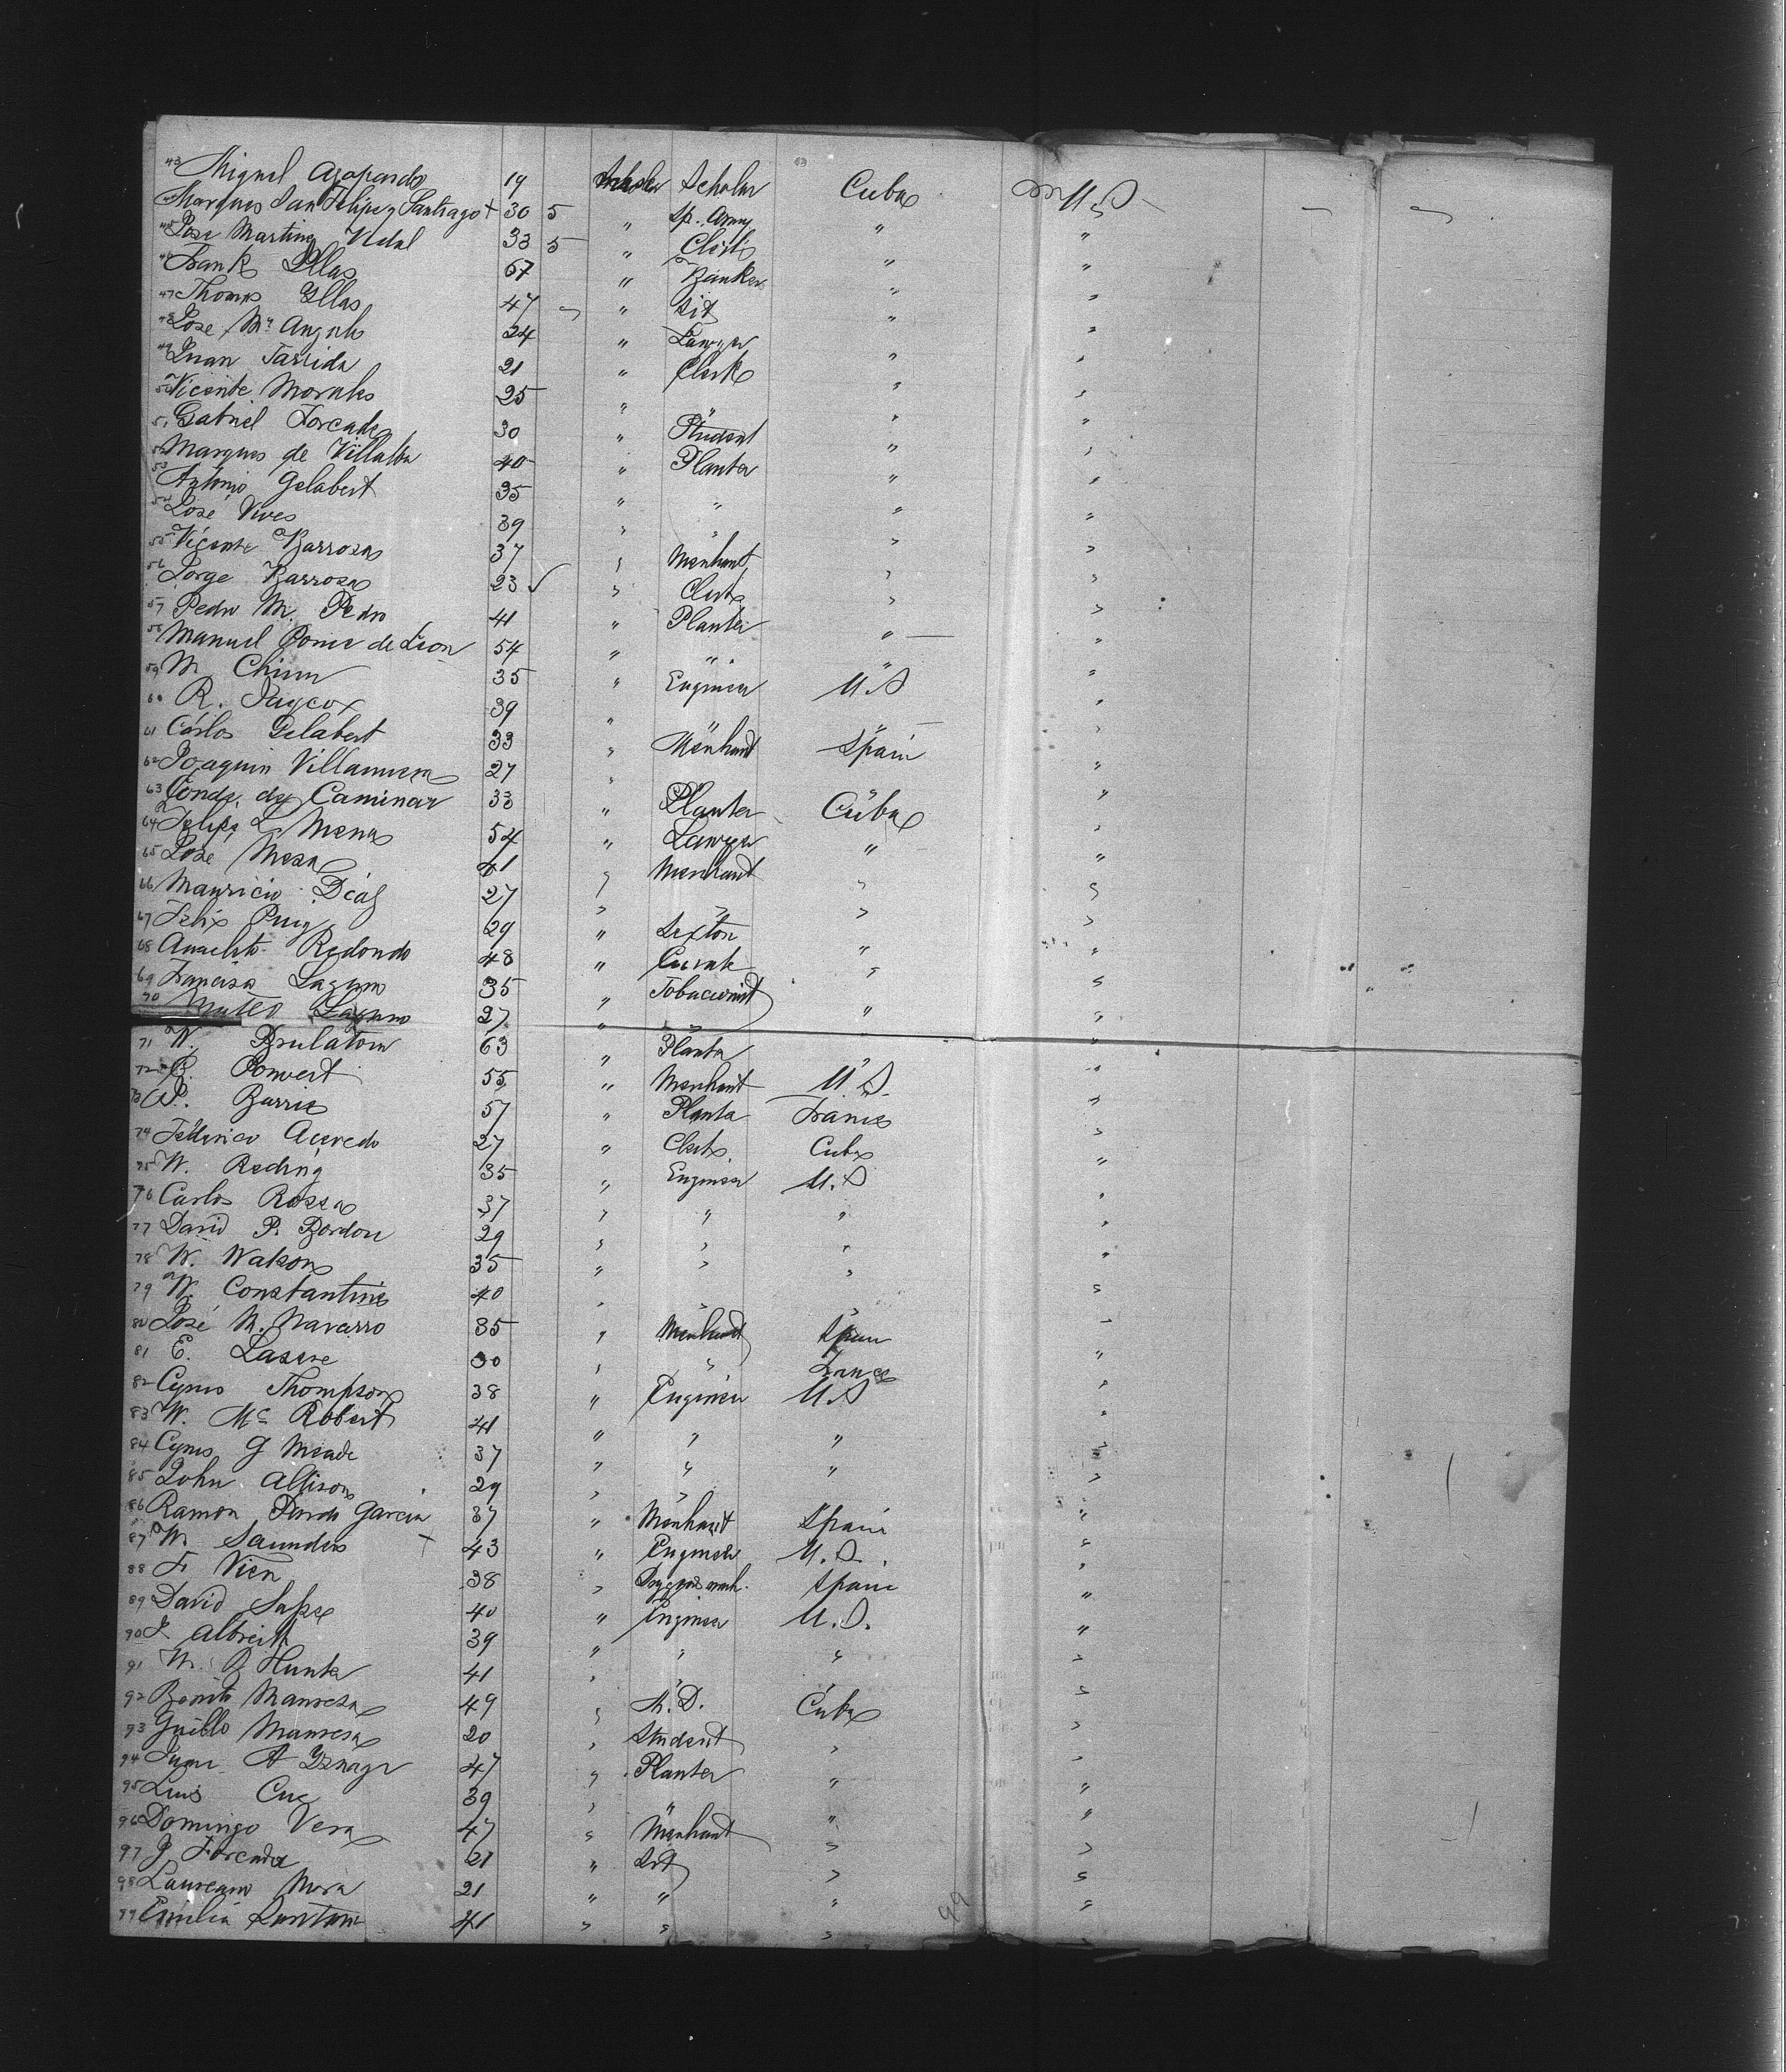 43 Miguel Azopardo 19 Scholar Cuba U.S
Marques San Felipe y Santiago + 30 5 " Sp. Army " "
45 Jose Martinez Vidal 33 5 " Clerk " "
Frank Yllas 67 " Banker " "
47 Thomas Yllas 47 " " "
48 Jose Ma Angulo 24 " Lawyer " "
49 Juan Tarrida 21 " Clerk " "
50 Vicente Morales 25 " " " "
51 Gabriel Forcade 30 " Student " "
52 Marques de Villalba 40 " Planter " "
53 Antonio Gelabert 35 " " " "
54 Jose Vives 39 " " " "
55 Vicente Barrosa 37 " Merchant " "
56 Jorge Barrosa 23 " Clerk " "
57 Pedro M. Pedro 41 " Planter " "
58 Manuel Ponce de Leon 54 " " " "
59 M Chinn 35 " Engineer U.S "
60 R. Jaycox 39 " " " "
61 Cárlos Gelabert 33 " Merchant Spain "
62 Joaquin Villanueva 27 " " " "
63 Conde de Caminar 33 " Planter Cuba "
64 Felipe L Mena 54 " Lawyer " "
65 Jose Mesa 41 " Merchant " "
66 Mauricio Diaz 27 " " " "
67 Felix Puig 29 " Sexton " "
68 Anacleto Redondo 48 " Curate " "
69 Francisca Laguno 35 " Tobacconist " "
70 Mateo Laguno 27 " " " "
71 W. Brulatour 63 " Planter " "
72 Convert 55 " Merchant U.S. "
73 P. Barrie 57 " Planter France "
74 Féderico Acevedo 27 " Clerk Cuba "
75 W. Reding 35 " Engineer U.S "
76 Carlos Rossa 37 " " " "
77 David P. Bordon 29 " " " "
78 W. Watson 35 " " " "
79 W. Constantine 40 " " " "
80 José M. Navarro 35 " Merchant Spain "
81 E. Lasere 30 " " France "
82 Cyrus Thompson 38 " Engineer U.S "
83 W. Mc Robert 41 " " " "
84 Cyrus G Meade 37 " " " "
85 John Allison 29 " " " "
86 Ramon Pardo Garcia 37 " Merchant Spain "
87 W. Saunders + 43 " Engineer U.S. "
88 F. Vien 38 " Spain "
89 David 40 " Engineer U.S. "
90 J. Albreith 39 " " " "
91 W. B Hunter 41 " " " "
92 Benito Manresa 49 " M.D. Cuba "
93 Guillo Manresa 20 " Student " "
94 A Yznaga 47 " Planter " "
95 Luis Cue 39 " " " "
96 Domingo Vera 47 " Merchant " "
97 J Forcade 21 " " "
98 Laureano Mora 21 " " " "
99 Emilia 41 " " "
99